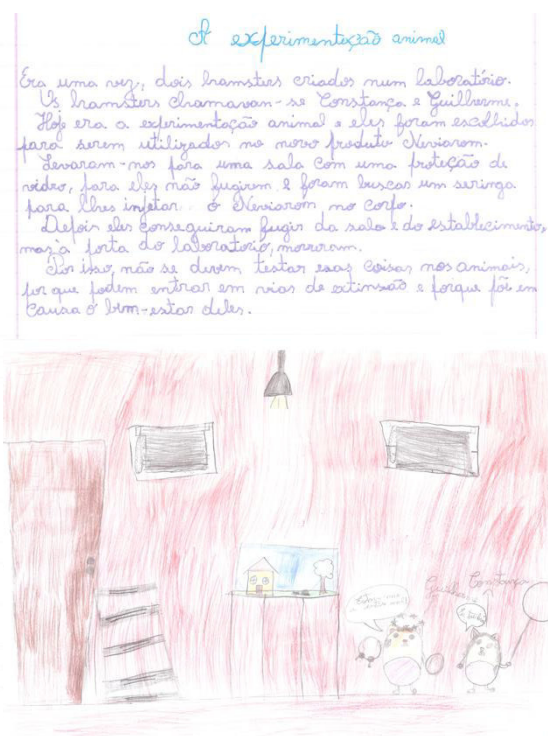 A experimentação animal
Era uma vez, dois hamsters criados num laboratório.
Os hamsters chamavam-se Constança e Guilherme.
Hoje era a experimentação animal e eles foram escolhidos
para serem utilizados no novo produto Neviarom.
Levaram-nos para uma sala com uma proteção de
video, para eles não fugirem e foram buscar um seringa
para lhes injetar o Neviarom no corpo.
Depois eles conseguiram fugir da sala e do establecimento,
mas à porta do laboratório, morreram.
Por isso, não se devem testar esas coisas nos animais,
por que podem entrar em vias de extinsão e porque põi em
causa o bem-estar deles.
Constança